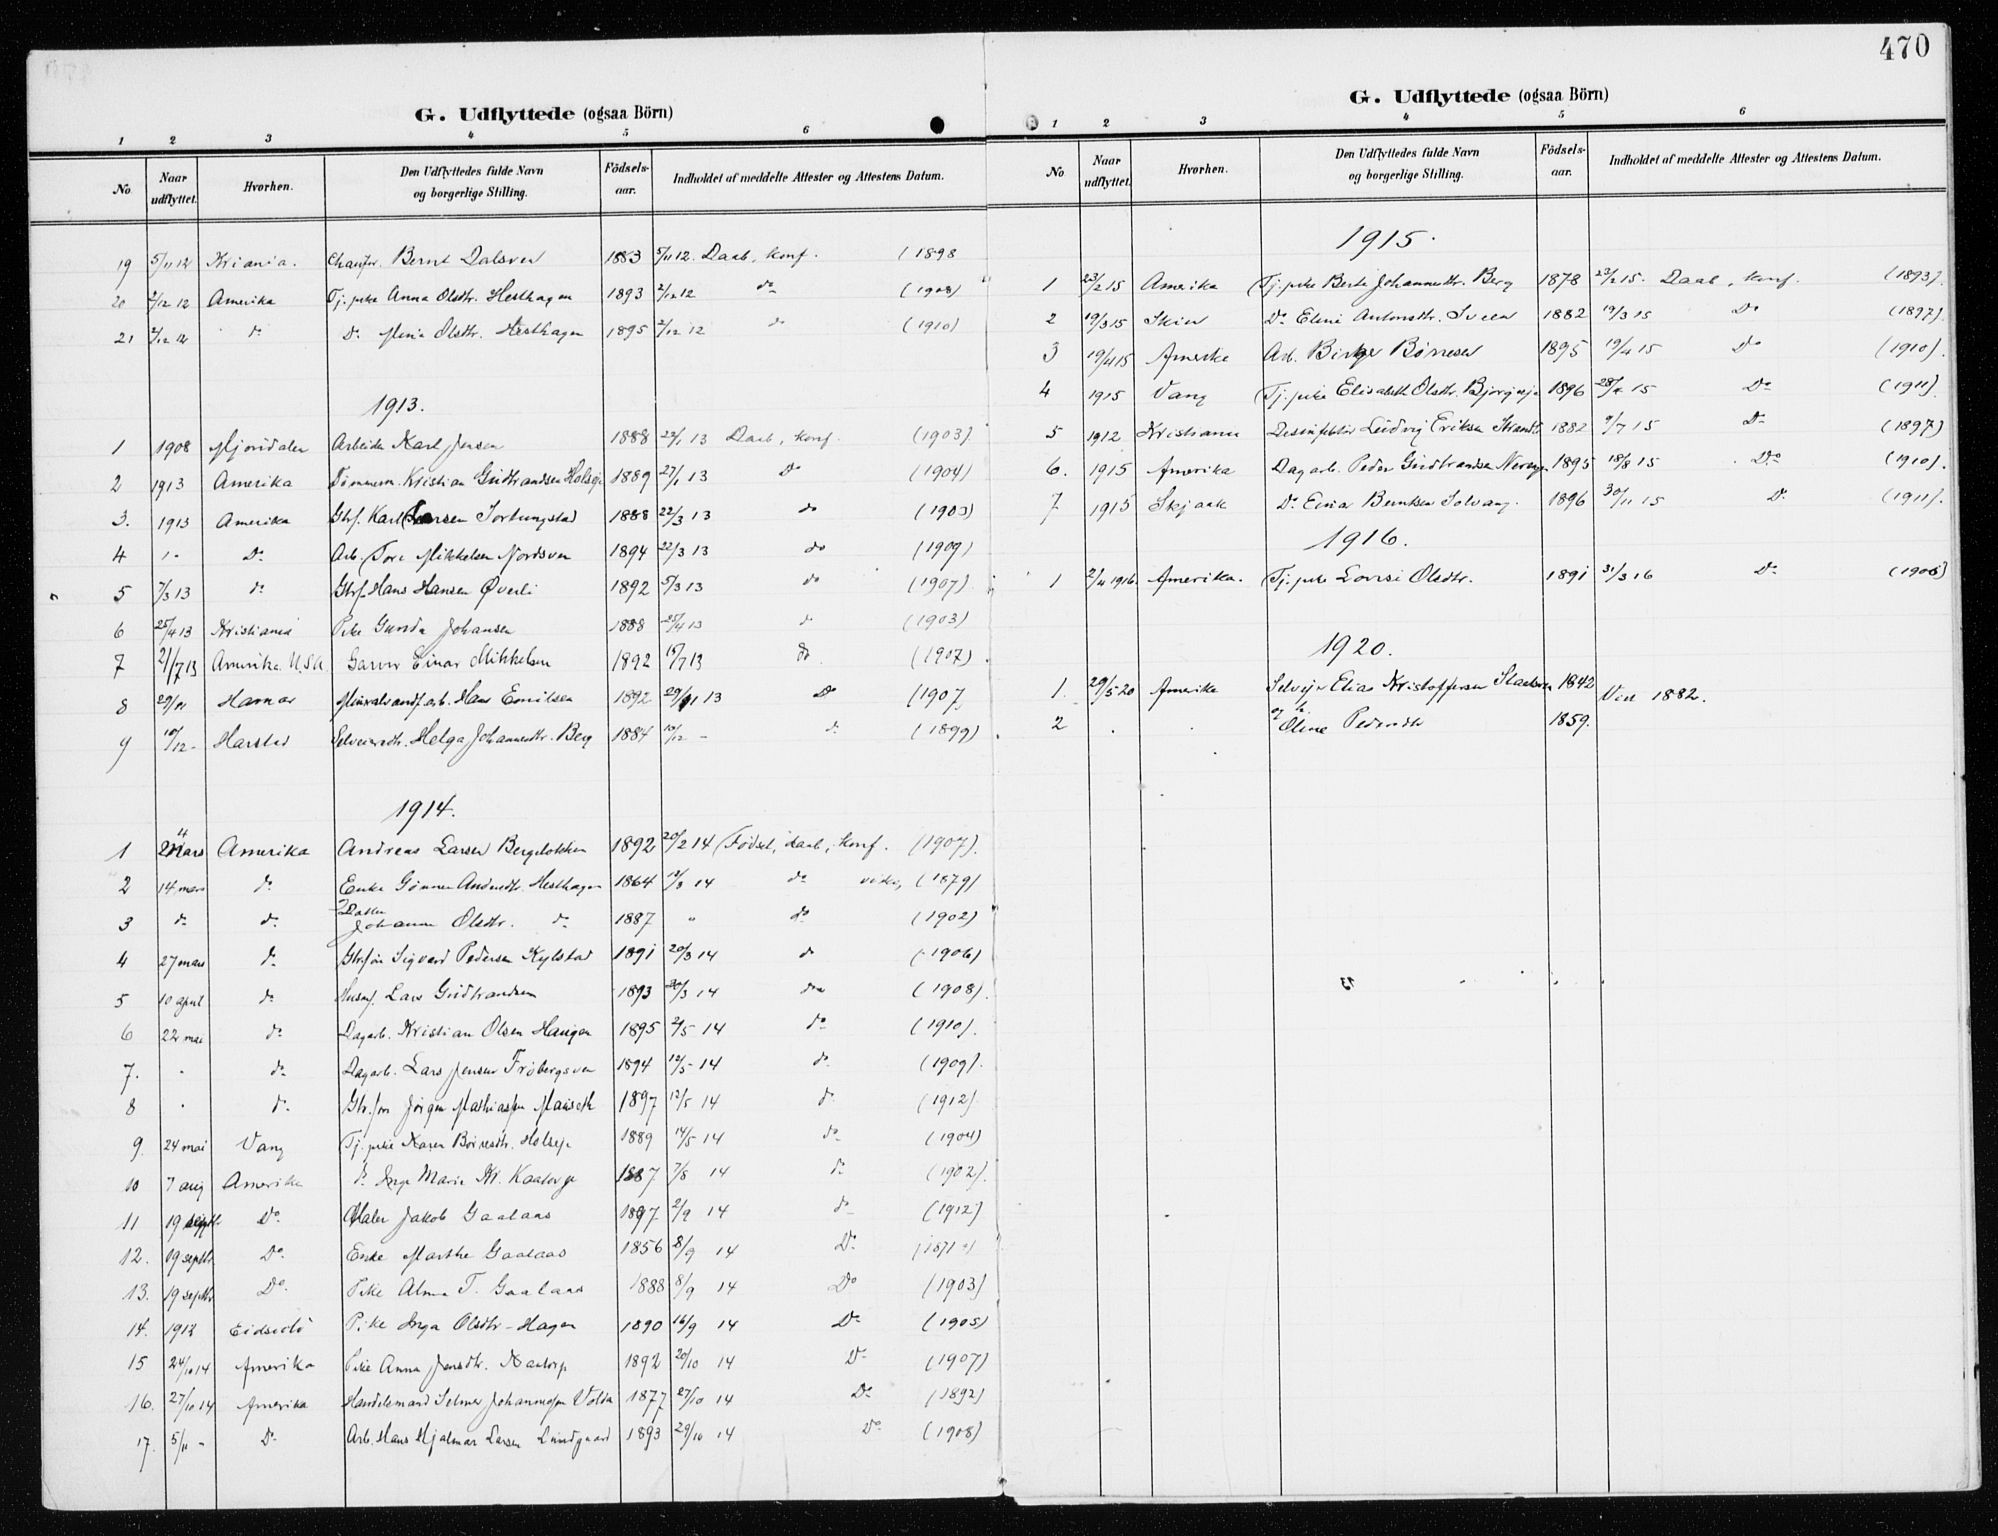 470
G. Udflyttede (ogsaa Börn)
1 2 3 4 5 6
No. Naar udflyttet. Hvorhen. Den Udflyttedes fulde Navn og borgerlige Stilling. Födsels-aar. Indholdet af meddelte Attester og Attestens Datum.
19 5/11 12 Kriania. Bernt Dalsveen 1883 5/11 12. Daab, konf. (1898
20 2/12 12 Amerika Tj. pike Anna Olsdtr. Hesthagen 1893 2/12 12 do (1908)
21 2/12 12 do Do Mina Olsdtr. Hesthagen 1895 2/12 12 do (1910)
1913.
1 1908 Mjøndalen Arbeider Karl Jensen 1888 13 Daab, konf. (1903)
2 1913 Amerika Tømmerm. Kristian Gudbrandsen 1889 27/1 13 Do (1904)
3. 1913 Amerika Karl Larsen 1888 22/3 13 do (1903)
4 Do Arb. Tore Mikkelsen Nordsven 1894 22/3 13 do (1909)
5 7/3 13 do Hans Hansen Øverli 1892 5/3 13 do (1907)
6 25/4 13 Kristiania Pike Gunda Johansen 1888 25/4 13 do (1903)
7 21/7 13 Amerika U.S.A. Garver Einar Mikkelsen 1892 13 do (1907).
8 Hamar Hans Emilsen 1892 29/11 13 Do (1907
9 10/12 - Harstad Helga Johannesdtr. Berg 1884 10/12 - do (1899)
1914.
1 Mars Amerika Andreas Larsen Bergeløkken 1892 20/2 14 Fødsel, daab, konf. (1907).
2 14 mars do Enke Andersdtr. Hesthagen 1864 12/3 14 do (1879)
3 do do Datter Johanne Olsdtr. do 1887 " do (1902)
4 27 mars do Sigvard Pedersen Kylstad 1891 20/3 14 do (1906)
5 10 april do Lars Gudbrandsen 1893 30/3 14 do (1908).
6 22 mai do Dagarb. Kristian Olsen Haugen 1895 2/5 14 do (1910).
7. " do Dagarb. Lars Jensen Frøbergsven 1894 12/5 14 do (1909).
8 " do Jørgen Mathiassen 1897 12/5 14 do (1912)
9. 24 mai Vang Tj. pike Karen Børresdtr. 1889 14/5 14 do (1904)
10 7 aug Amerika do Inga Marie Kr. 1887 7/8 14 do (1902).
11 19 septbr. Do Maler Jakob Gaalaas 1897 2/9 14 do (1912)
12. 19 septbr. Do Enke Marthe Gaalaas 1856 8/9 14 Do
13. 19 septbr Do Pike Alma T. Gaalaas 1888 8/9 14 Do (1903)
14. 1912 Pike Inga Olsdtr. Hagen 1890 16/9 14 Do (1905)
15 24/10 14 Amerika Pike Anna Jensdtr. 1892 20/10 14 Do (1907)
16. 27/10 14 Amerika Handelsmand Selmer Johannesen Volden 1877 27/10 14 Do (1892)
17. 5/11 - Do Arb. Hans Hjalmar Larsen Lundgaard 1893 29/10 14 Do (1908)
G. Udflyttede (ogsaa Börn)
1 2 3 4 5 6
No Naar udflyttet. Hvorhen. Den Udflyttedes fulde Navn og borgerlige Stilling. Födsels-aar. Indholdet af meddelte Attester og Attestens Datum.
1915.
1 23/2 15 Amerika Tj. pike Berte Johannesdtr. Berg 1878 23/2 15. Daab, konf. (1893).
2 19/3 15 Skien Do Eline Antonsdtr. Sveen 1882 19/3 15 Do (1897).
3 19/4 15 Amerika Arb. Birger Børresen 1895 19/4 15 Do (1910).
4 1915 Vang Tj. pike Elisabeth Olsdtr. 1896 28/4 15 Do (1911)
5 1912 Kristiania Desinfektør Ludvig Eriksen 1882 9/7 15 Do (1897)
6. 1915 Amerika Dagarb. Peder Gudbrandsen 1895 18/8 15 Do (1910).
7 1915 Skjaak Do Berntsen Solvang. 1896 30/11 15 Do (1911).
1916.
1 2/4 1916. Amerika. Tj. pike Lovise Olsdtr. 1891 31/3 16 Do (1906)
1920.
1. 29/5 20 Amerika Selvejer Elias Kristoffersen 1842 Viet 1882.
2 " " og h. Oline Pedersdtr 1859.